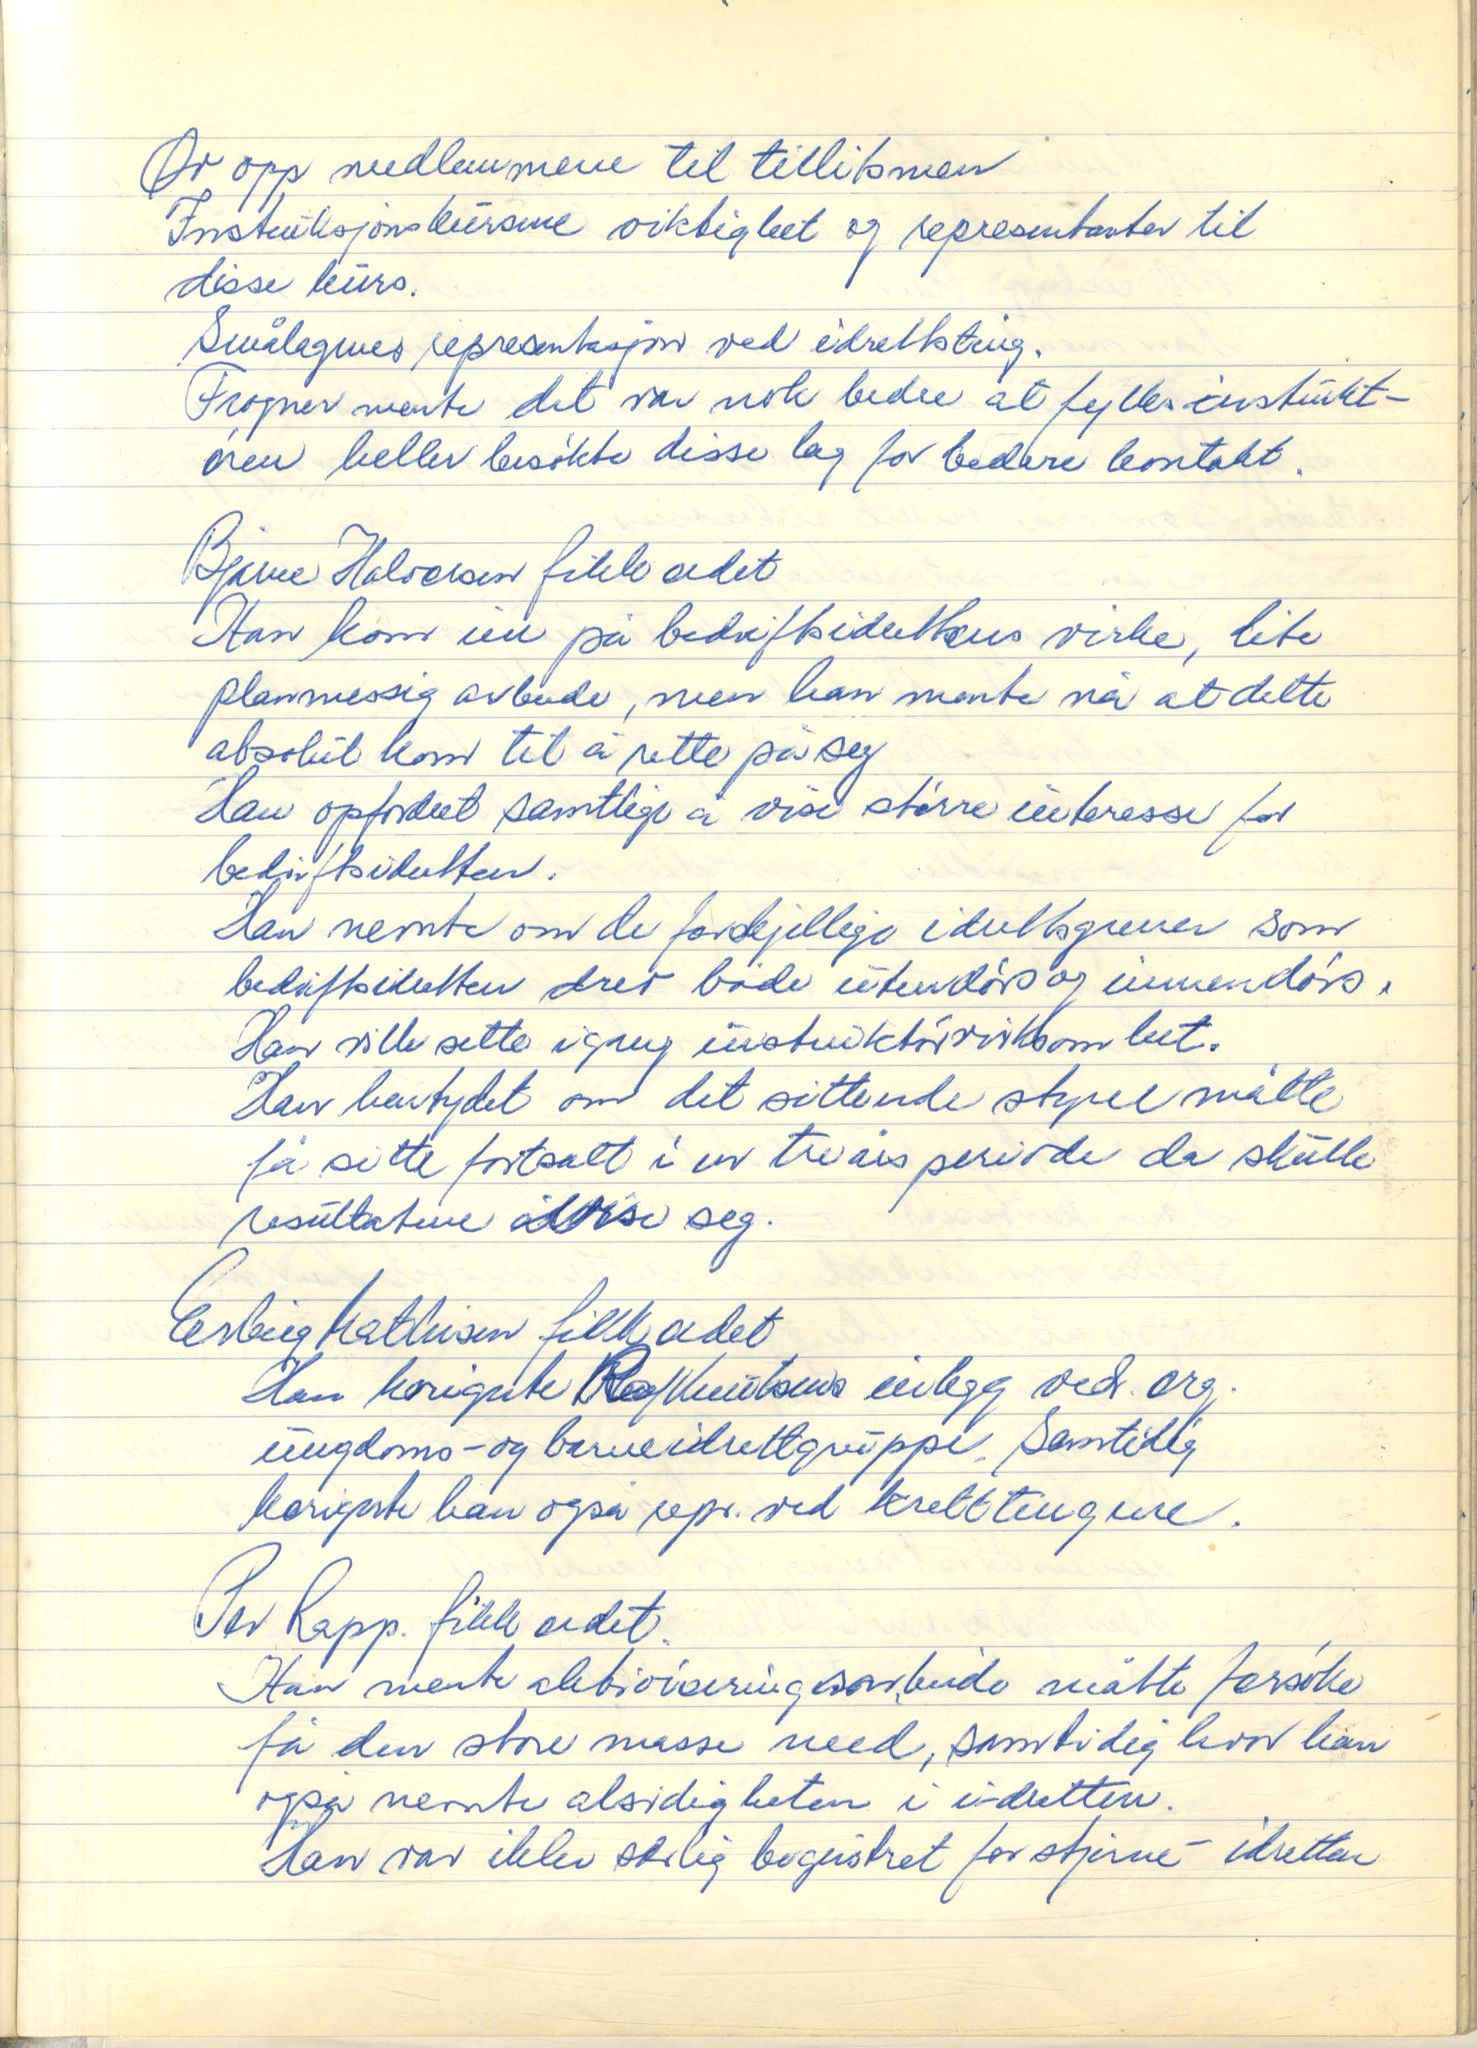 Øv opp medlemmene til tillitsmen
Instruksjonskursene viktighet og representanter til
disse kurs.
Smålagenes representasjon ved idrettsting.
Frogner mente det var nok bedre at fylkesinstrukt-
ören heller besökte disse lag for bedere kontakt.
Bjarne Halvorsen fikk ordet
Han kom inn på bedriftsidrettens virke, lite
planmessig arbeide, men han mente nå at dette
absolut kom til å rette på seg
Han opfordret samtlige å vise större interesse for
bedriftsidretten.
Han nevnte om de forskjellige idrettsgrener som
bedriftsidretten drev både utendörs og innendörs.
Han ville sette igang instruktörvirksomhet.
Han hentydet om det sittende styret måtte
få sitte fortsatt i en treårs periode da skulle
resultatene vise seg.
Erling Mathisen fikk ordet
Han korigerte Knutsens inlegg vedr. org.
ungdoms- og barneidrettgruppe. Samtidig
korigerte han også repr. ved kretttingene.
Per Rapp. fikk ordet.
Han mente aktiviseringsarbeide måtte forsöke
få den store masse med, samtidig hvor han
også nevnte alsidigheten i idretten.
Han var ikke særlig begeistret for stjerne-idretten